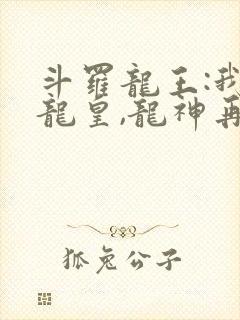 斗羅龍王:我
龍皇,龍神再
狐兔公子